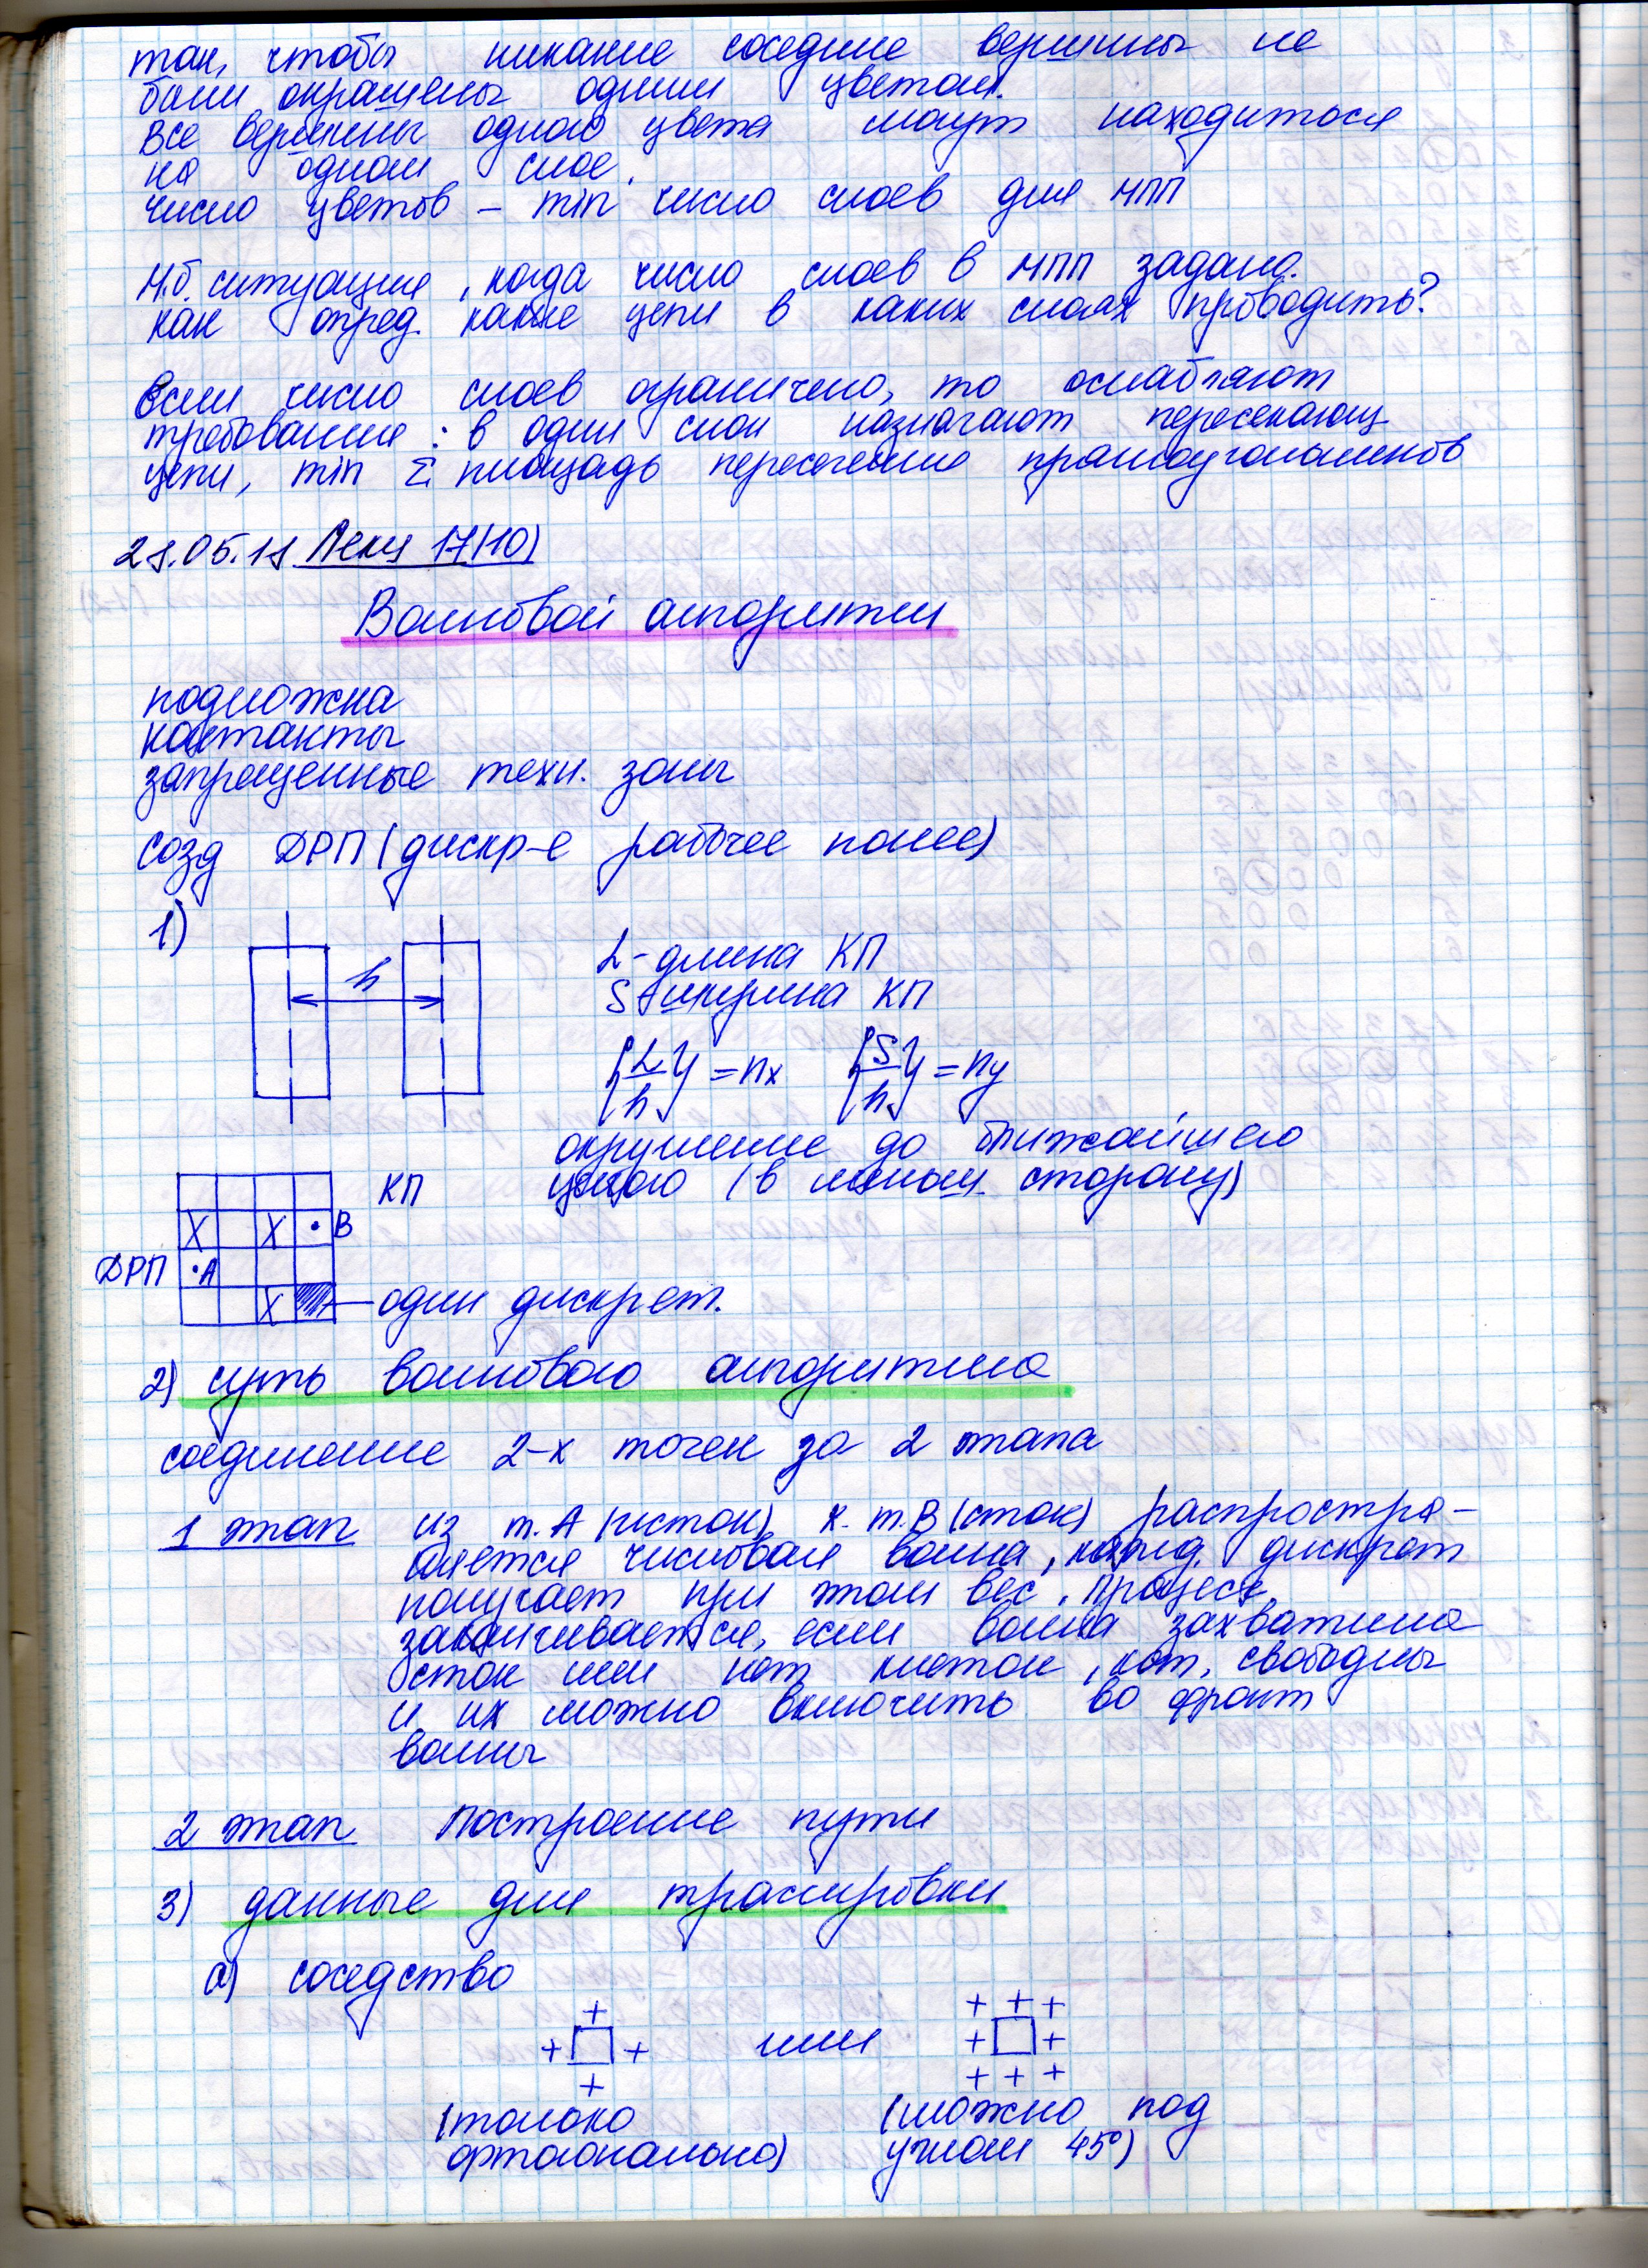 так, чтобы никакие соседние вершины не
были окрашены одним цветом.
Все вершины одного цвета могут находиться
на одном слое.
число цветов – min число слоев для МПП
М.б. ситуация, когда число слоев в МПП задано.
как опред. какие цепи в каких слоях проводить?
Если число слоев ограничено, то ослабляют
требования: в один слой назначают пересекающ
цепи, min Σ площадь пересечения прямоугольников
Лекц 17(10)
Волновой алгоритм
подложка
контакты
запрещенные техн. зоны
созд ДРП (дискр-е рабочее полее)
1)
h
L - длина КП
S - ширина КП
{L/h} = nx {S/h} = ny
округление до ближайшего
целого (в меньш. сторону)
КП
X X B
ДРП A
X один дискрет.
2) суть волнового алгоритма
соединение 2-х точек за 2 этапа
1 этап из т.А (исток) к т.В (сток) распростра-
няется числовая волна, кажд. дискрет
получает при этом вес. Процесс
заканчивается, если волна захватила
сток или нет клеток, кот. свободны
и их можно включить во фронт
волны
2 этап Построение пути
3) данные для трассировки
а) соседство
+ + + +
+ + или + +
+ + + +
(только (можно под
ортогонально) углом 45°)